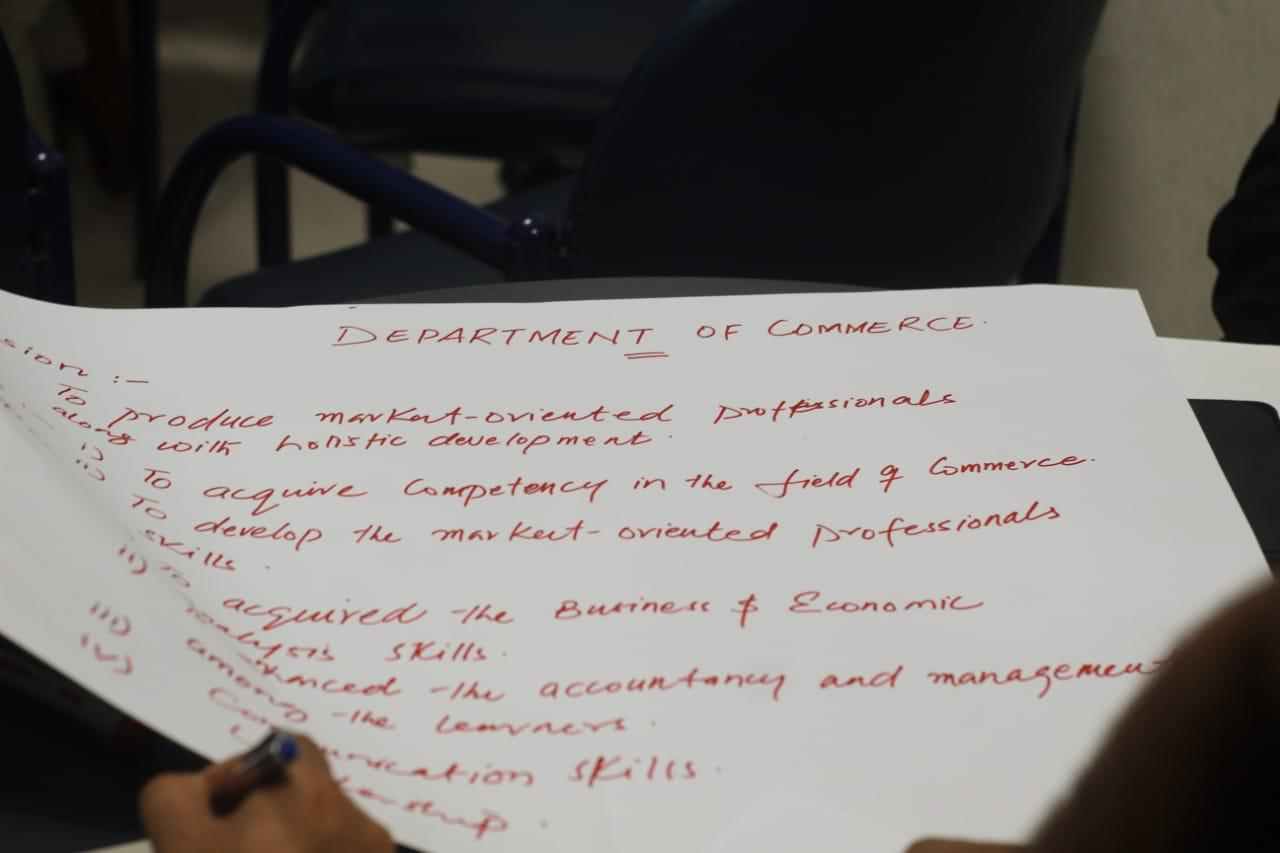 DEPARTMENT OF COMMERCE.
sion :-
To produce market-oriented professionals
along with holistic development.
i) To acquire Competency in the field of Commerce.
ii) To develop the market-oriented professionals
skills.
ii) To acquired the Business & Economic
analysis skills.
iii) enhanced the accountancy and management
among the learners.
iv) Communication skills.